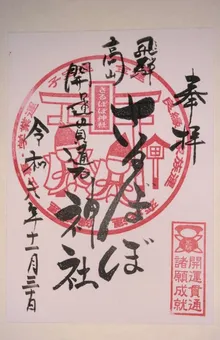 奉拝
飛騨
高山
さるぼぼ
開運貫通
神社
令和六年十一月三十日
さるぼぼ神社
開運貫通
諸願成就